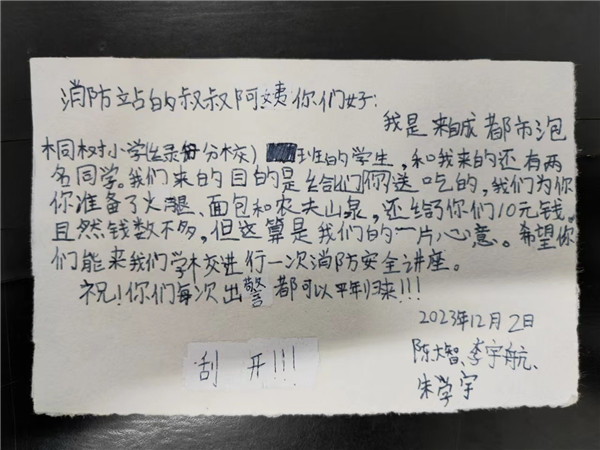 消防站的叔叔阿姨你们好:
我是来自成都市泡
桐树小学(绿舟分校) 班的学生,和我来的还有两
名同学。我们来的目的是给们你送吃的,我们为你
你准备了火腿、面包和农夫山泉,还给了你们10元钱。
且然钱数不多,但这算是我们的一片心意。希望你
们能来我们学校进行一次消防安全讲座。
祝!你们每次出警都可以平归来!!!
2023年12月2日
刮开!!!
陈大智、李宇航、
朱学宇